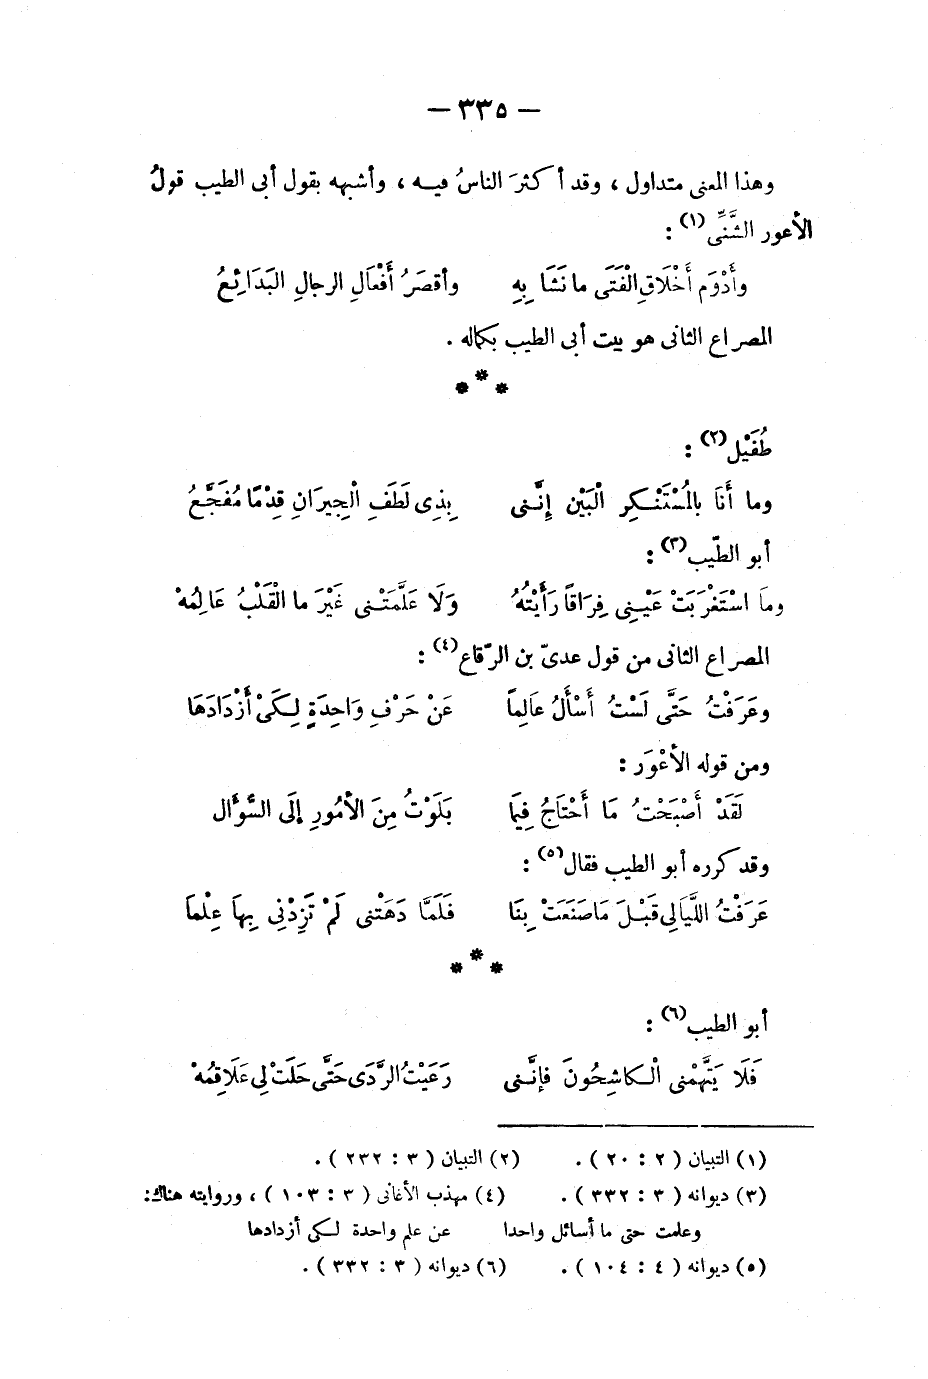 — ٣٣٥ —
وهذا المعنى متداول ، وقد أكثرَ الناسُ فيه ، وأشبهه بقول أبى الطيب قولُ
الأعور الشَّنِّى(١) :
وأَدْوَم أَخْلَاقِ الْفَتَى ما نَشَا بِهِ وأقصَرُ أَفْعَالِ الرجالِ البَدَائِعُ
المصراع الثانى هو بيت أبى الطيب بكماله .
* * *
طُفَيْل(٢) :
وما أَنَا بالْمُسْتَنْكِرِ الْبَيْنِ إِنَّنى بِذِى لَطَفِ الْجِيرَانِ قِدْمًا مُفَجَّعُ
أبو الطّيب(٣) :
ومَا اسْتَغْرَبَتْ عَيْنِى فِرَاقًا رَأَيْتُهُ وَلَا عَلَّمَتْنى غَيْرَ ما الْقَلْبُ عَالِمُهْ
المصراع الثانى من قول عدىّ بن الرّقاع(٤) :
وعَرَفْتُ حَتَّى لَسْتُ أَسْأَلُ عَالِمًا عَنْ حَرْفِ وَاحِدَةٍ لِكَىْ أَزْدَادَهَا
ومن قوله الأعْوَر :
لَقَدْ أَصْبَحْتُ مَا أَحْتَاجُ فِيمَا بَلَوْتُ مِنَ الأُمُورِ إلَى السُّؤَال
وقد كرره أبو الطيب فقال(٥) :
عَرَفْتُ اللَّيَالِى قَبْلَ مَا صَنَعَتْ بِنَا فَلَمَّا دَهَتْنى لَمْ تَزِدْنِى بِهَا عِلْمَا
* * *
أبو الطيب(٦) :
فَلَا يَتَّهِمْنى الْكاشِحُونَ فإنَّنى رَعَيْتُ الرَّدَى حَتَّى حَلَتْ لِى عَلَاقِمُهْ
(١) التبيان ( ٢ : ٢٠ ) . (٢) التبيان ( ٣ : ٢٣٢ ) .
(٣) ديوانه ( ٣ : ٣٣٢ ) . (٤) مهذب الأغانى ( ٣ : ١٠٣ ) ، وروايته هناك:
وعلمت حتى ما أسائل واحدا عن علم واحدة لكى أزدادها
(٥) ديوانه ( ٤ : ١٠٤ ) . (٦) ديوانه ( ٣ : ٣٣٢ ) .